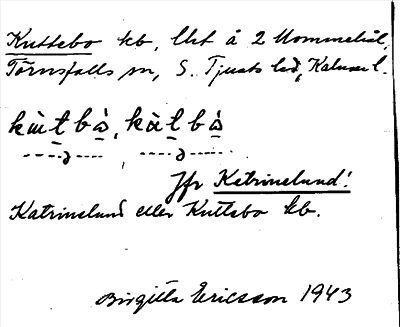 Kuttebo kb, lht å 2 Mommehål,
Törnsfalls sn, S. Tjusts hd, Kalmar l.
kùtbò, kàtbò
Jfr Katrinelund!
Katrinelund eller Kuttebo kb.
Birgitta Ericsson 1943